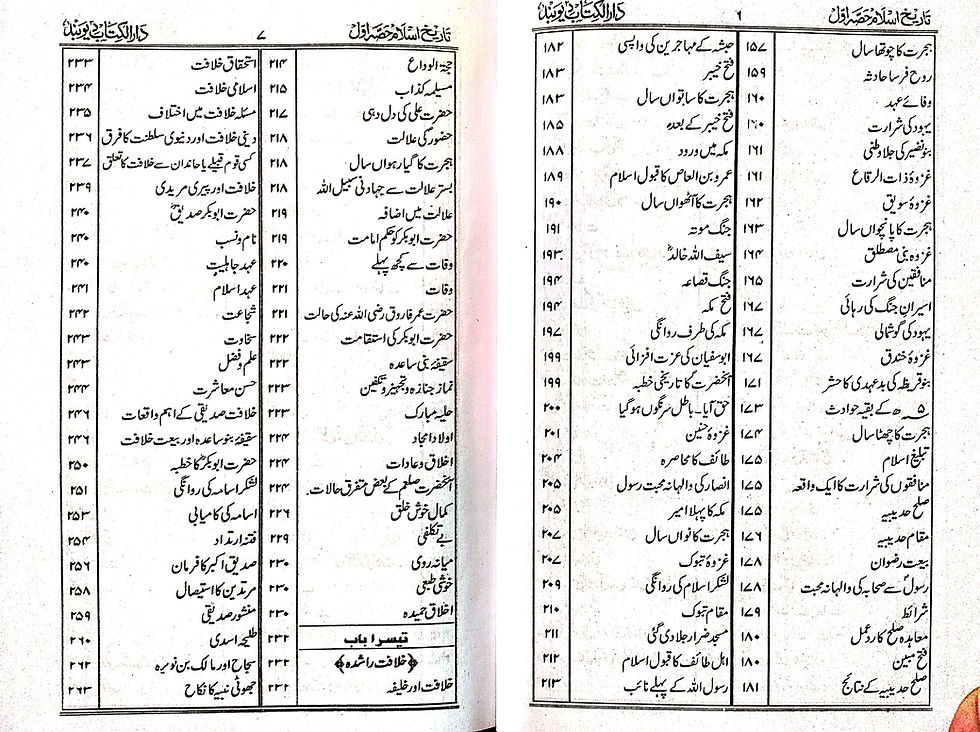 تاریخ اسلام حصہ اول ۶ دارالکتاب دیوبند
ہجرت کا چوتھا سال ۱۵۷
روح فرسا حادثہ ۱۵۹
وفائے عہد ۱۶۰
یہود کی شرارت ۱۶۰
بنو نضیر کی جلا وطنی ۱۶۱
غزوۂ ذات الرقاع ۱۶۱
غزوۂ سویق ۱۶۲
ہجرت کا پانچواں سال ۱۶۳
غزوہ بنی مصطلق ۱۶۴
منافقین کی شرارت ۱۶۵
اسیران جنگ کی رہائی ۱۶۷
یہود کی گوشمالی ۱۶۷
غزوۂ خندق ۱۶۷
بنو قریظہ کی بد عہدی کا حشر ۱۷۱
۵ھ کے بقیہ حوادث ۱۷۳
ہجرت کا چھٹا سال ۱۷۴
تبلیغ اسلام ۱۷۵
منافقوں کی شرارت کا ایک واقعہ ۱۷۵
صلح حدیبیہ ۱۷۵
مقام حدیبیہ ۱۷۶
بیعت رضوان ۱۷۸
رسولؐ سے صحابہ کی والہانہ محبت ۱۷۸
شرائط ۱۷۹
معاہدہ صلح کا رد عمل ۱۸۰
فتح مبین ۱۸۰
صلح حدیبیہ کے نتائج ۱۸۱
حبشہ کے مہاجرین کی واپسی ۱۸۲
فتح خیبر ۱۸۳
ہجرت کا ساتواں سال ۱۸۳
فتح خیبر کے بعد ۱۸۵
مکہ میں ورود ۱۸۸
عمرو بن العاص کا قبول اسلام ۱۸۹
ہجرت کا آٹھواں سال ۱۹۰
جنگ موتہ ۱۹۱
سیف اللہ خالدؓ ۱۹۳
جنگ قضاعہ ۱۹۴
فتح مکہ ۱۹۴
مکہ کی طرف روانگی ۱۹۷
ابوسفیان کی عزت افزائی ۱۹۹
آنحضرت کا تاریخی خطبہ ۱۹۹
حق آیا۔ باطل سرنگوں ہو گیا ۲۰۰
غزوۂ حنین ۲۰۱
طائف کا محاصرہ ۲۰۴
انصار کی والہانہ محبت رسول ۲۰۵
مکہ کا پہلا امیر ۲۰۵
ہجرت کا نواں سال ۲۰۷
غزوۂ تبوک ۲۰۷
لشکر اسلام کی روانگی ۲۰۹
مقام تبوک ۲۱۰
مسجد ضرار جلا دی گئی ۲۱۱
اہل طائف کا قبول اسلام ۲۱۲
رسول اللہ کے پہلے نائب ۲۱۳
تاریخ اسلام حصہ اول ۷ دارالکتاب دیوبند
حجۃ الوداع ۲۱۴
مسیلمہ کذاب ۲۱۵
حضرت علی کی دل دہی ۲۱۷
حضور کی علالت ۲۱۸
ہجرت کا گیارہواں سال ۲۱۸
بستر علالت سے جہاد فی سبیل اللہ ۲۱۸
علالت میں اضافہ ۲۱۹
حضرت ابوبکر کو حکم امامت ۲۱۹
وفات سے کچھ پہلے ۲۲۰
وفات ۲۲۱
حضرت عمر فاروق رضی اللہ عنہ کی حالت ۲۲۱
حضرت ابوبکر کی استقامت ۲۲۲
سقیفۂ بنی ساعدہ ۲۲۲
نماز جنازہ و تجہیز و تکفین ۲۲۳
حلیہ مبارک ۲۲۳
اولاد امجاد ۲۲۴
اخلاق و عادات ۲۲۴
آنحضرت صلعم کے بعض متفرق حالات۔ ۲۲۴
کمال خوش خلقی ۲۲۶
بے تکلفی ۲۲۹
میانہ روی ۲۳۰
خوش طبعی ۲۳۰
اخلاق حمیدہ ۲۳۰
تیسرا باب ۲۳۲
﴿خلافت راشدہ﴾ ۲۳۲
خلافت اور خلیفہ ۲۳۲
استحقاق خلافت ۲۳۳
اسلامی خلافت ۲۳۴
مسئلہ خلافت میں اختلاف ۲۳۵
دینی خلافت اور دنیوی سلطنت کا فرق ۲۳۶
کسی قوم قبیلے یا خاندان سے خلافت کا تعلق ۲۳۷
خلافت اور پیری مریدی ۲۳۹
حضرت ابوبکر صدیقؓ ۲۴۰
نام و نسب ۲۴۰
عہد جاہلیت ۲۴۰
عہد اسلام ۲۴۱
شجاعت ۲۴۲
سخاوت ۲۴۳
علم و فضل ۲۴۳
حسن معاشرت ۲۴۴
خلافت صدیقی کے اہم واقعات ۲۴۶
سقیفہ بنو ساعدہ اور بیعت خلافت ۲۴۶
حضرت ابوبکرؓ کا خطبہ ۲۵۰
لشکر اسامہ کی روانگی ۲۵۱
اسامہ کی کامیابی ۲۵۳
فتنہ ارتداد ۲۵۴
صدیق اکبر کا فرمان ۲۵۶
مرتدین کا استیصال ۲۵۸
منشور صدیقی ۲۵۹
طلیحہ اسدی ۲۶۰
سجاح اور مالک بن نویرہ ۲۶۲
جھوٹی نبیہ کا نکاح ۲۶۳